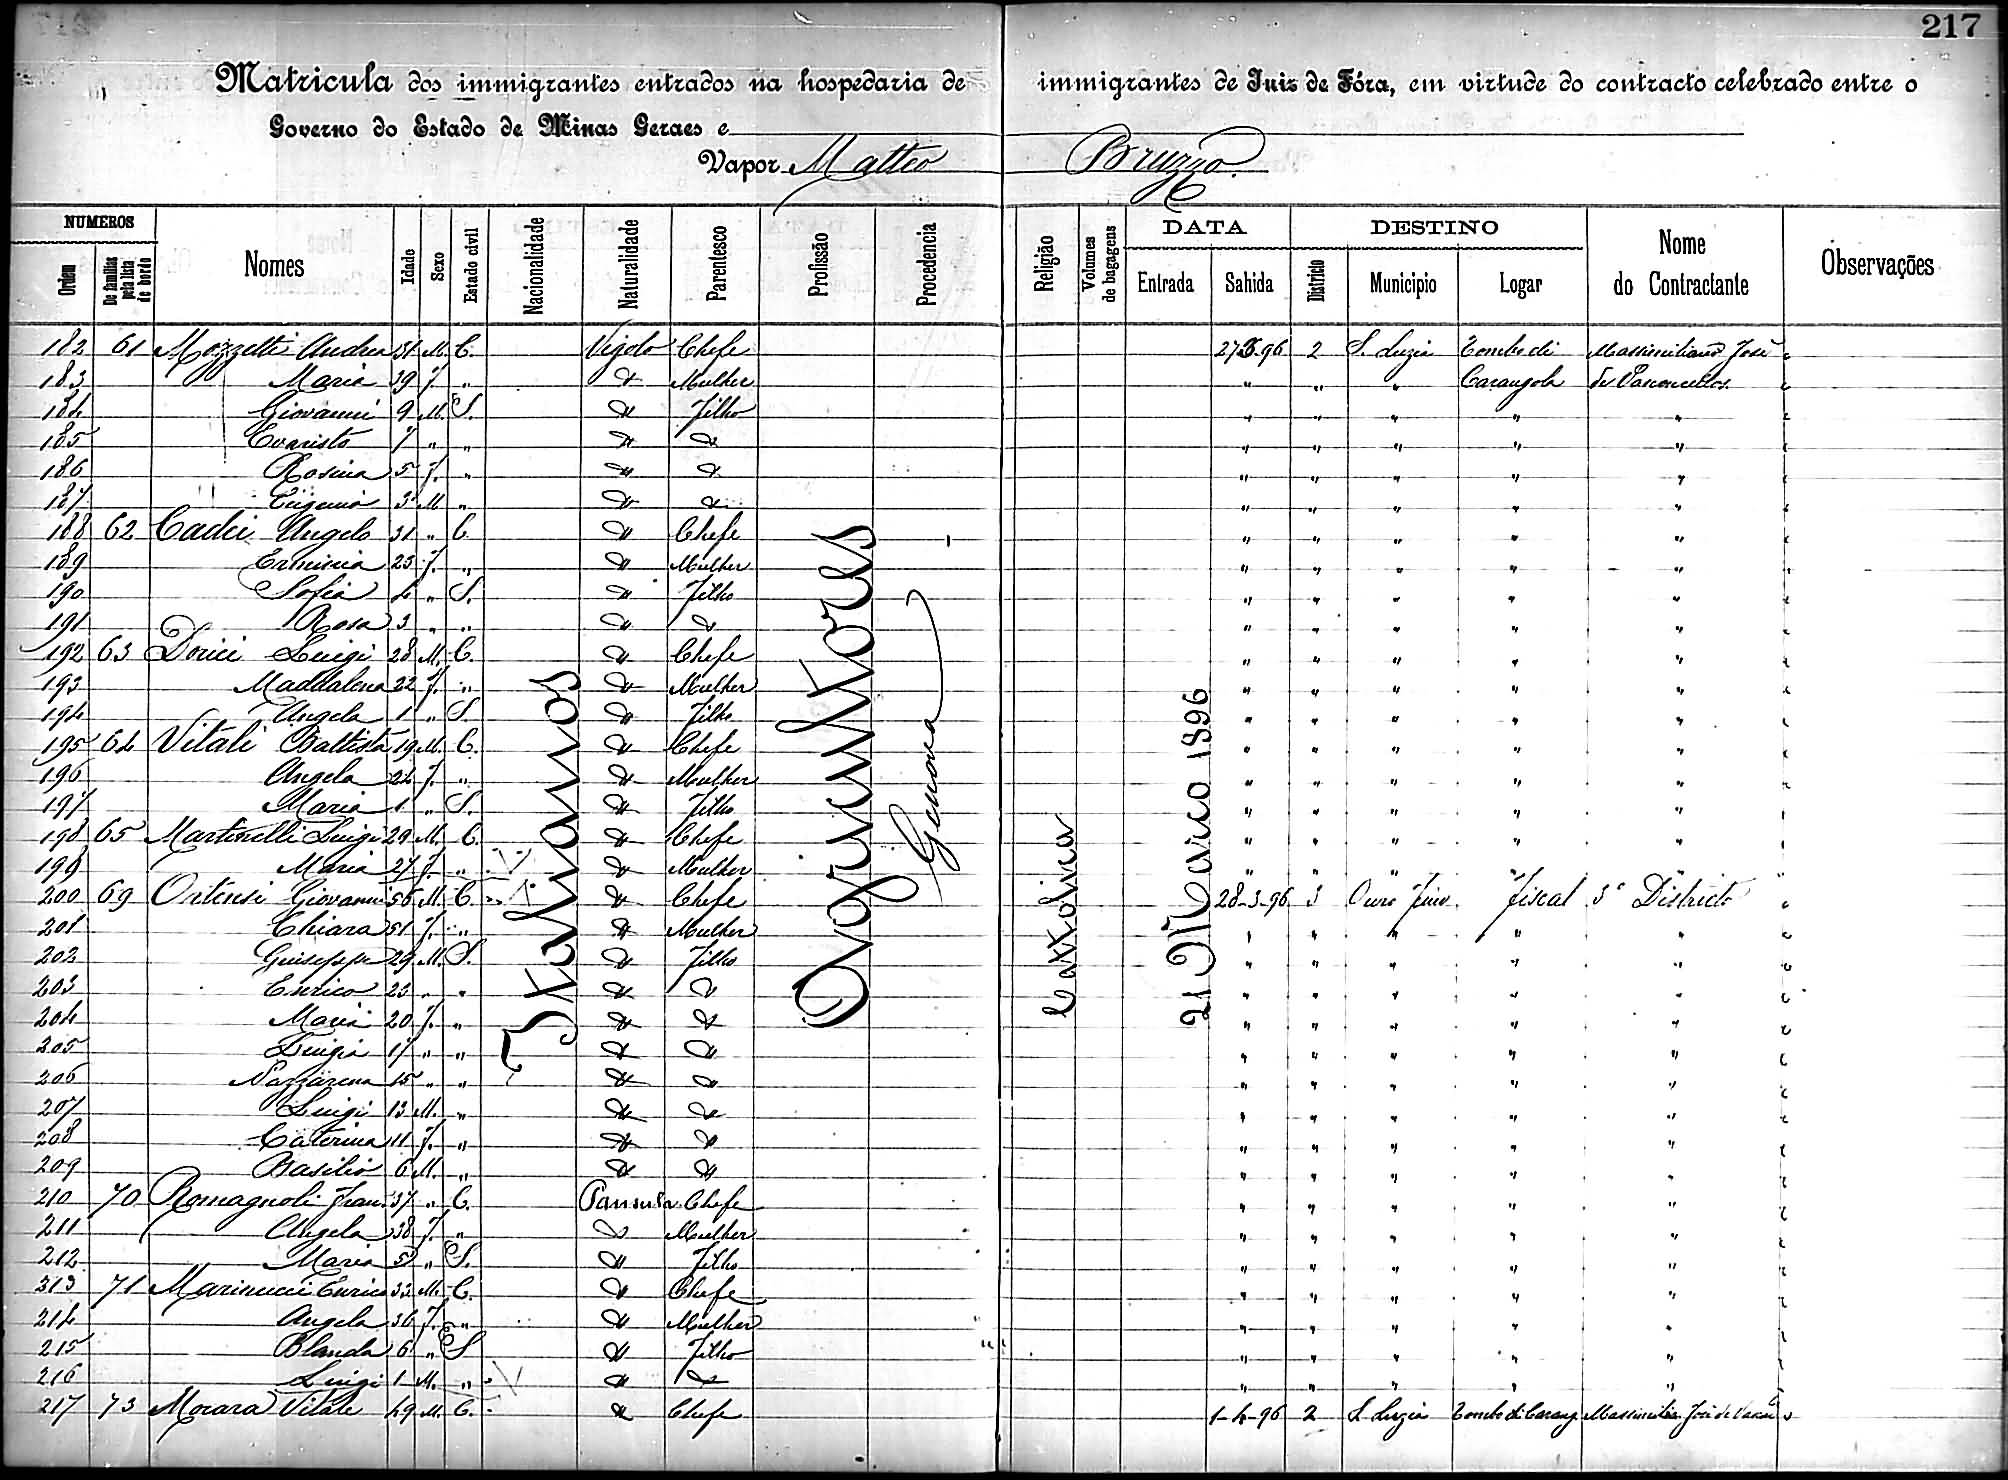 217
Matricula dos immigrantes entrados na hospedaria de immigrantes de Juiz de Fóra, em virtude do contracto celebrado entre o
Governo do Estado de Minas Geraes e
Vapor Matteo Bruzzo.
NUMEROS DATA DESTINO
Ordem De familias pela lista de bordo Nomes Idade Sexo Estado civil Nacionalidade Naturalidade Parentesco Profissão Procedencia Religião Volumes de bagagens Entrada Sahida Districto Municipio Logar Nome do Contractante Observações
Italianos
Agricultores
Genova
Cattolica
21 Março 1896
182 61 Mozzetti Andrea 51 M. C. Vigolo Chefe 27-3-96 2 S. Luzia Tombo di Massimiliano José
183 Maria 39 F. " " Mulher " " " Carangola de Vasconcellos
184 Giovanni 9 M. S. " Filho " " " " "
185 Evaristo 7 " " " " " " " " "
186 Rosina 5 F. " " " " " " " "
187 Eugenio 3 M " " " " " " " "
188 62 Cadei Angelo 31 " C. " Chefe " " " " "
189 Erminia 25 F. " " Mulher " " " " "
190 Sofia 4 " S. " Filho " " " " "
191 Rosa 3 " " " " " " " " "
192 63 Dorici Luigi 28 M. C. " Chefe " " " " "
193 Maddalena 22 F. " " Mulher " " " " "
194 Angela 1 " S. " Filho " " " " "
195 64 Vitali Battista 19 M. C. " Chefe " " " " "
196 Angela 24 F. " " Mulher " " " " "
197 Maria 1 " S. " Filho " " " " "
198 65 Martinelli Luigi 29 M. C. " Chefe " " " " "
199 Maria 27 F. " " Mulher " " " " "
200 69 Ortensi Giovanni 56 M. C. " Chefe 28-3-96 3 Ouro Fino Fiscal 3º Districto
201 Chiara 51 F. " " Mulher " " " " "
202 Guiseppe 29 M. S. " Filho " " " " "
203 Enrico 23 " " " " " " " " "
204 Maria 20 F. " " " " " " " "
205 Luigia 17 " " " " " " " " "
206 Nazzarena 15 " " " " " " " " "
207 Luigi 13 M. " " " " " " " "
208 Caterina 11 F. " " " " " " " "
209 Basilio 6 M. " " " " " " " "
210 70 Romagnoli Fran. 37 " C. Pansula Chefe " " " " "
211 Angela 38 F. " " Mulher " " " " "
212 Maria 5 " S. " Filho " " " " "
213 71 Marinucci Enrico 33 M. C. " Chefe " " " " "
214 Angela 36 F. " " Mulher " " " " "
215 Blanda 6 " S " Filho " " " " "
216 Luigi 1 M. " " " " " " " "
217 73 Morara Vitale 49 M. C. " Chefe 1-4-96 2 S. Luzia Tombo di Carang Massimilia José de Vascon